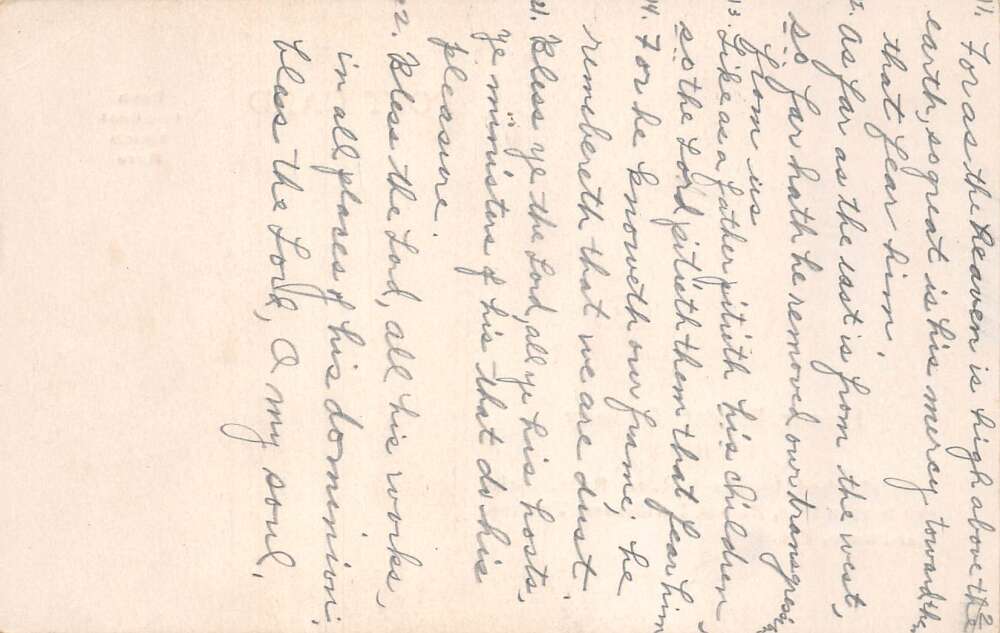 11. For as the heaven is high above the
earth, so great is his mercy toward them
that fear him.
12. As far as the east is from the west,
so far hath he removed our transgressions
from us.
13. Like as a father pitieth his children,
so the Lord pitieth them that fear him
14. For he knoweth our frame; he
remembereth that we are dust.
21. Bless ye the Lord, all ye his hosts,
ye ministers of his that do his
pleasure.
22. Bless the Lord, all his works,
in all places of his dominion;
bless the Lord, O my soul.